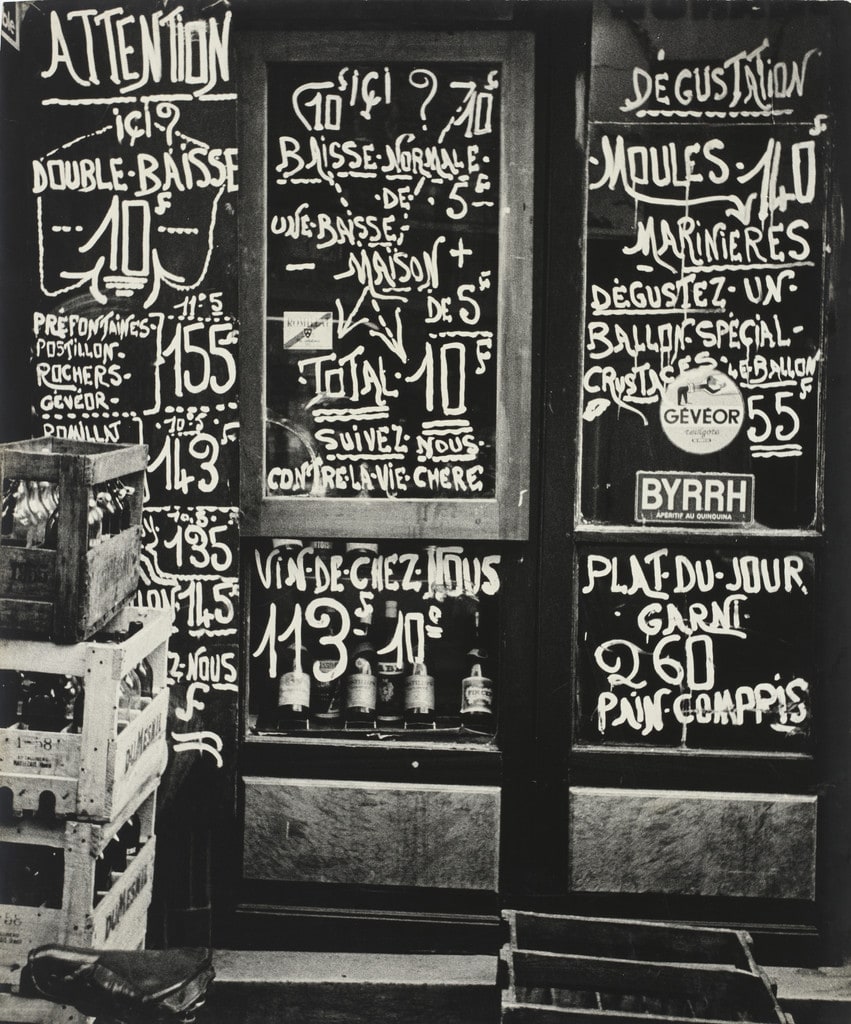 ATTENTION
içi?
DOUBLE-BAÏSSE
10F
11°5
PRÉFONTAINES-
POSTILLON-
ROCHERS-
GÉVÉOR-
155F
ROMILLAT
10°5
143F
10°5
135F
145F
Z-NOUS
F
10F içi ? 10F
BAISSE-NORMALE-
DE-5F
UNE-BAISSE,
- MAISON +
DE 5F
TOTAL-10F
SUIVEZ-NOUS-
CONTRE-LA-VIE-CHÈRE
VIN-DE-CHEZ NOUS
113F-10°
DÉGUSTATION
-MOULES-140F
MARINIERES
DÉGUSTEZ-UN-
BALLON-SPÉCIAL-
CRUSTACES-LE-BALLON
55F
GÉVÉOR
BYRRH
APÉRITIF AU QUINQUINA
PLAT-DU-JOUR
-GARNI-
260
PAIN-COMPPIS
1-58
DUMESNIL
DUMESNIL